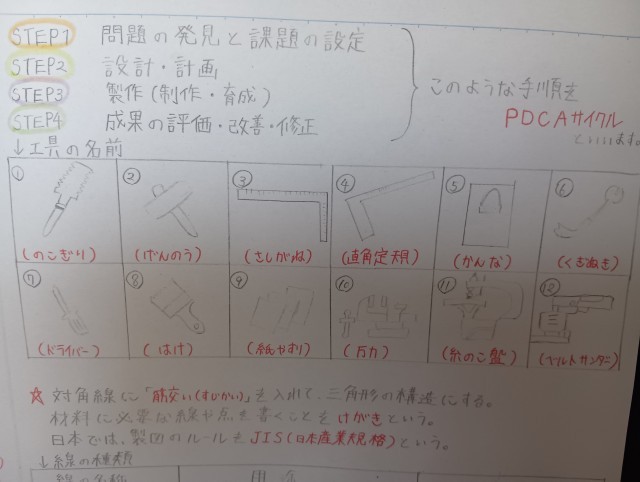 STEP1 問題の発見と課題の設定
STEP2 設計・計画
STEP3 製作(制作・育成)
STEP4 成果の評価・改善・修正
このような手順を
PDCAサイクル
といいます。
↓工具の名前
① ② ③ ④ ⑤ ⑥
(のこぎり) (げんのう) (さしがね) (直角定規) (かんな) (くぎぬき)
⑦ ⑧ ⑨ ⑩ ⑪ ⑫
(ドライバー) (はけ) (紙やすり) (万力) (糸のこ盤) (ベルトサンダ)
☆ 対角線に「筋交い(すじかい)」を入れて、三角形の構造にする。
材料に必要な線や点を書くことをけがきという。
日本では、製図のルールをJIS(日本産業規格)という。
↓線の種類
線の名称 用途